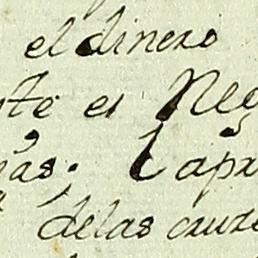 el dinero
te el Neg
as. Capa
delas cruze